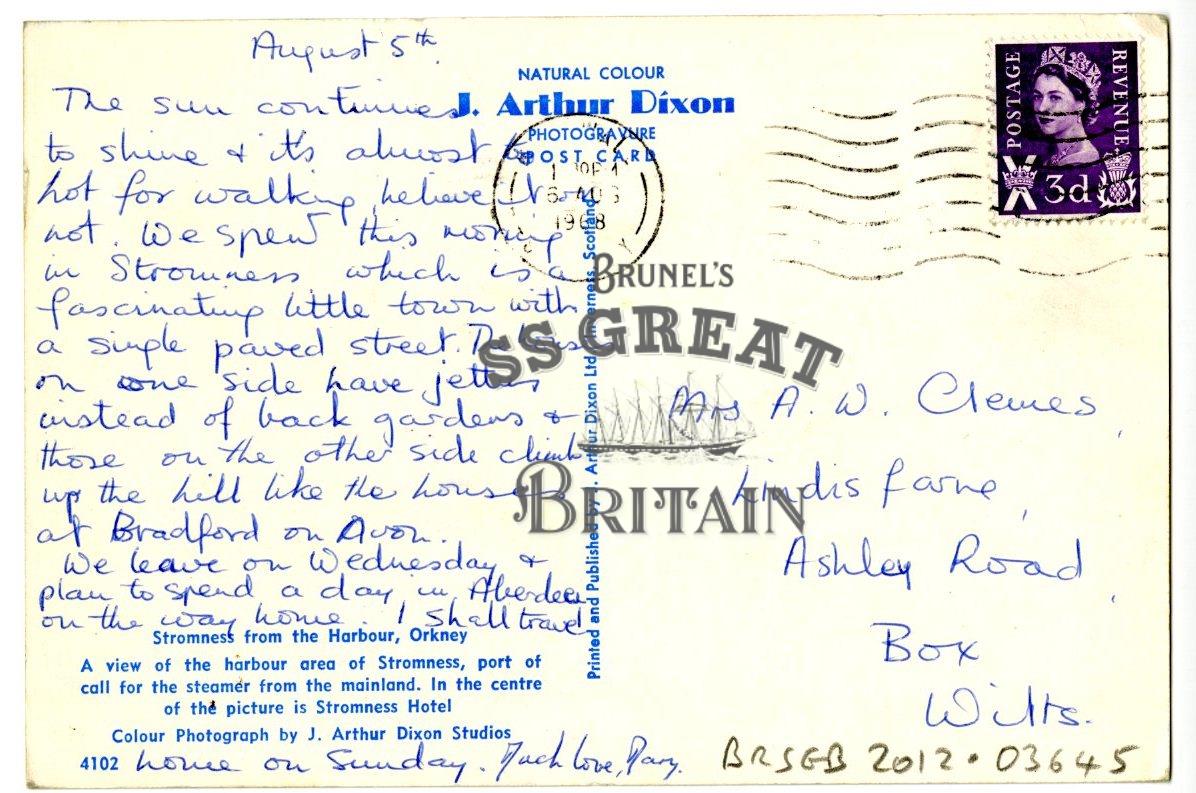 August 5th.
The sun continues
to shine & it's almost too
hot for walking, believe it or
not. We spent this morning
in Stromness which is a
fascinating little town with
a single paved street. The houses
on one side have jetties
instead of back gardens &
those on the other side climb
up the hill like the houses
at Bradford on Avon.
We leave on Wednesday &
plan to spend a day in Aberdeen
on the way home. I shall travel
home on Sunday. Much love, Mary.
NATURAL COLOUR
J. Arthur Dixon
PHOTOGRAVURE
POST CARD
6 AUG
1968
POSTAGE
REVENUE
3d
BRUNEL'S
SS GREAT
BRITAIN
Printed and Published by J. Arthur Dixon Ltd., Inverness, Scotland.
Mrs A. W. Clemes,
Lindisfarne,
Ashley Road,
Box
Wilts.
Stromness from the Harbour, Orkney
A view of the harbour area of Stromness, port of
call for the steamer from the mainland. In the centre
of the picture is Stromness Hotel
Colour Photograph by J. Arthur Dixon Studios
4102
BRSGB 2012.03645